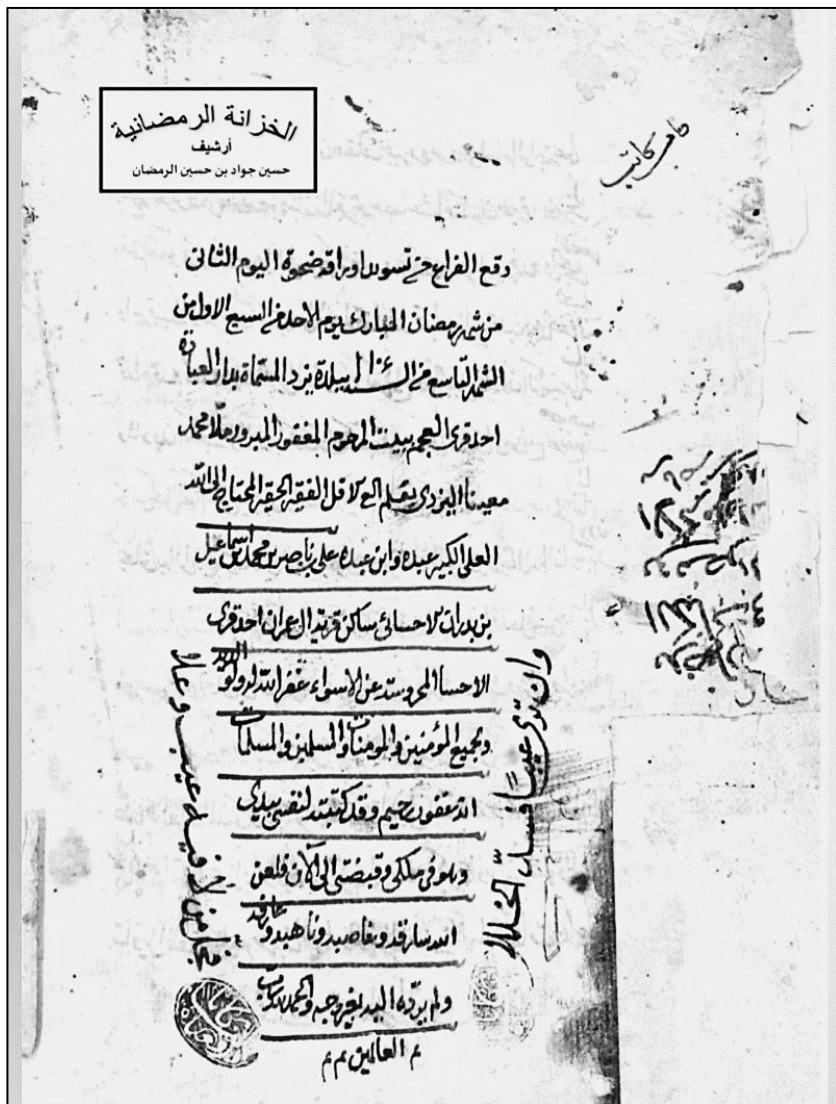 الخزانة الرمضانية
أرشيف
حسين جواد بن حسين الرمضان
كاتب
وقع الفراغ من تسويد اوراقه ضحوة اليوم الثاني
من شهر رمضان المبارك يوم الاحد في السبع الاول من
الشهر التاسع من السنة ببلدة يزد المسماة بدار العبادة
احد قرى العجم ببيت المرحوم المغفور المبرور ملا محمد
اليزدي بقلم الاقل الفقير الحقير المحتاج الى الله
العلي الكبير عبده وابن عبده علي بن ناصر بن محمد بن اسماعيل
بن بدران الاحسائي ساكن قرية ال عمران احد قرى
الاحساء المحروسة عن الاسواء غفر الله له ولوالديه
ولجميع المؤمنين والمومنات والمسلمين والمسلمات
انه غفور رحيم وقد كتبته لنفسي بيدي
وهو في ملكي وقبضتي الى الآن فلعن
الله سارقه وغاصبه وناهبه
ولم يرده اليه بغير وجه والحمد لله رب
العالمين م م
وان ترى عيبا فسد الخللا
فجل من لا فيه عيب وعلا